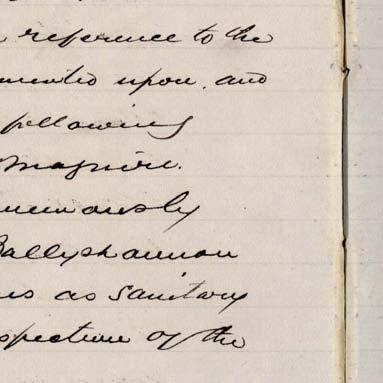 reference to the
mented upon. and
following
Maguire.
unanimously
Ballyshannon
as Sanitary
spection of the